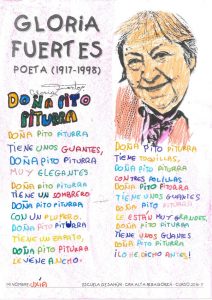 GLORIA
FUERTES
POETA (1917-1998)
DOÑA PITO
PITURRA
DOÑA PITO PITURRA
TIENE UNOS GUANTES,
DOÑA PITO PITURRA
MUY ELEGANTES
DOÑA PITO PITURRA
TIENE UN SOMBRERO
DOÑA PITO PITURRA
CON UN PLUMERO.
DOÑA PITO PITURRA
TIENE UN ZAPATO,
DOÑA PITO PITURRA
LE VIENE ANCHO.
DOÑA PITO PITURRA
TIENE TOQUILLAS,
DOÑA PITO PITURRA
CON TRES POLILLAS
DOÑA PITO PITURRA
TIENE UNOS GUANTES
DOÑA PITO PITURRA
LE ESTÁN MUY GRANDES,
DOÑA PITO PITURRA
TIENE UNOS GUANTES
DOÑA PITO PITURRA
¡LO HE DICHO ANTES!
MI NOMBRE UXÍA
ESCUELA DE
CURSO